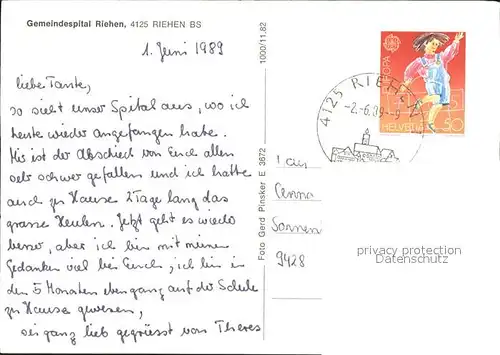 Gemeindespital Riehen, 4125 RIEHEN BS
1. Juni 1989
liebe Tante,
so sieht unser Spital aus, wo ich
heute wieder angefangen habe.
Mir ist der Abschied von Euch allen
sehr schwer gefallen und ich hatte
auch zu Hause 2 Tage lang das
grosse Heulen. Jetzt geht es wieder
besser, aber ich bin mit meinen
Gedanken viel bei Euch, ich bin in
den 5 Monaten eben ganz auf der Schule
zu Hause gewesen,
sei ganz lieb gegrüsst von Theres
1000/11.82
Foto Gerd Pinsker E 3672
4125 RIEHEN
-2.-6.89-9
EUROPA
HELVETIA
50
Anna
Sonnen
9428
privacy protection
Datenschutz